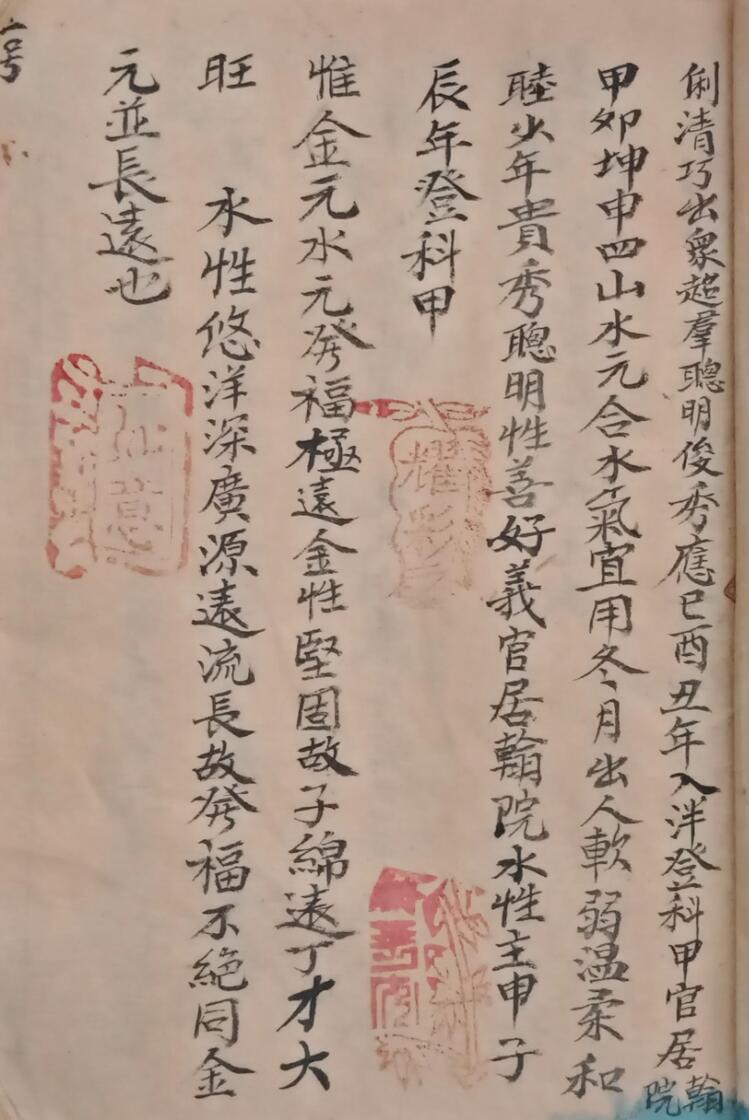 俐清巧出衆超羣聰明俊秀應巳酉丑年入泮登科甲官居翰院
甲卯坤申四山水元合水氣宜用冬月出人軟弱温柔和
睦少年貴秀聰明性善好義官居翰院水性主申子
辰年登科甲
惟金元水元発福極遠金性堅固故子綿遠丁才大
旺 水性悠洋深廣源遠流長故発福不絕同金
元並長遠也
号
耀彩
意